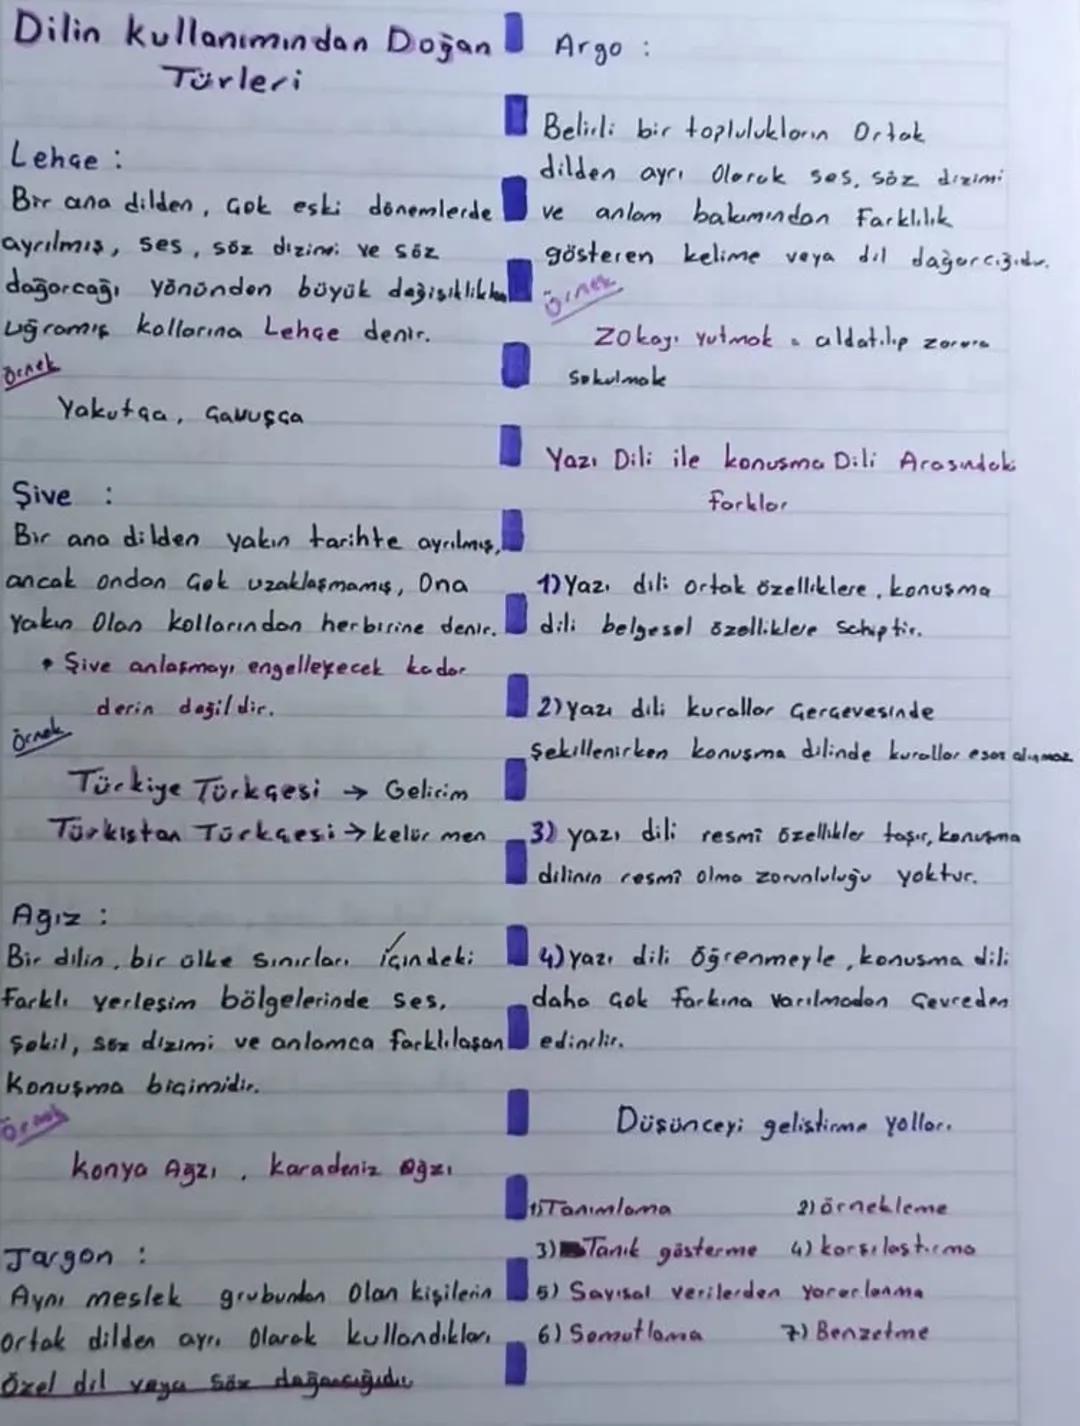 Dilin kullanımından Doğan
Türleri
Lehçe :
Bir ana dilden, çok eski dönemlerde
ayrılmış, ses, söz dizimi ve söz
dağorcağı yönünden büyük değişiklikle
uğramış kollarına Lehçe denir.
Örnek
Yakutça, Çavuşça
Şive :
Bir ana dilden yakın tarihte ayrılmış,
ancak ondan çok uzaklaşmamış, Ona
Yakın Olan kollarından herbirine denir.
• Şive anlaşmayı engelleyecek kadar
derin değildir.
Örnek
Türkiye Türkçesi → Gelirim
Türkistan Türkçesi → kelür men
Ağız :
Bir dilin, bir ülke sınırları içindeki
Farklı yerleşim bölgelerinde ses,
Şekil, söz dizimi ve anlamca farklılaşan
Konuşma biçimidir.
Örnek
Konya Ağzı, karadeniz ağzı
Jargon :
Aynı meslek grubundan Olan kişilerin
ortak dilden ayrı Olarak kullandıkları
özel dil veya söz dağarcığıdır
Argo :
Belirli bir toplulukların Ortak
dilden ayrı Olarak ses, söz dizimi
ve anlam bakımından Farklılık
gösteren kelime veya dil dağarcığıdır.
Örnek
Zokayı yutmak = aldatılıp zarara
Sokulmak
Yazı Dili ile konuşma Dili Arasındaki
farklar
1) Yazı dili ortak özelliklere, konuşma
dili belgesel özelliklere Sahiptir.
2) yazı dili kurallar çerçevesinde
Şekillenirken konuşma dilinde kurallar esas alınmaz
3) yazı dili resmî özellikler taşır, konuşma
dilinin resmî olma zorunluluğu yoktur.
4) yazı dili öğrenmeyle, konuşma dili
daha çok farkına varılmadan Çevreden
edinilir.
Düşünceyi geliştirme yolları
1) Tanımlama 2) örnekleme
3) Tanık gösterme 4) karşılaştırma
5) Sayısal verilerden yararlanma
6) Somutlama 7) Benzetme